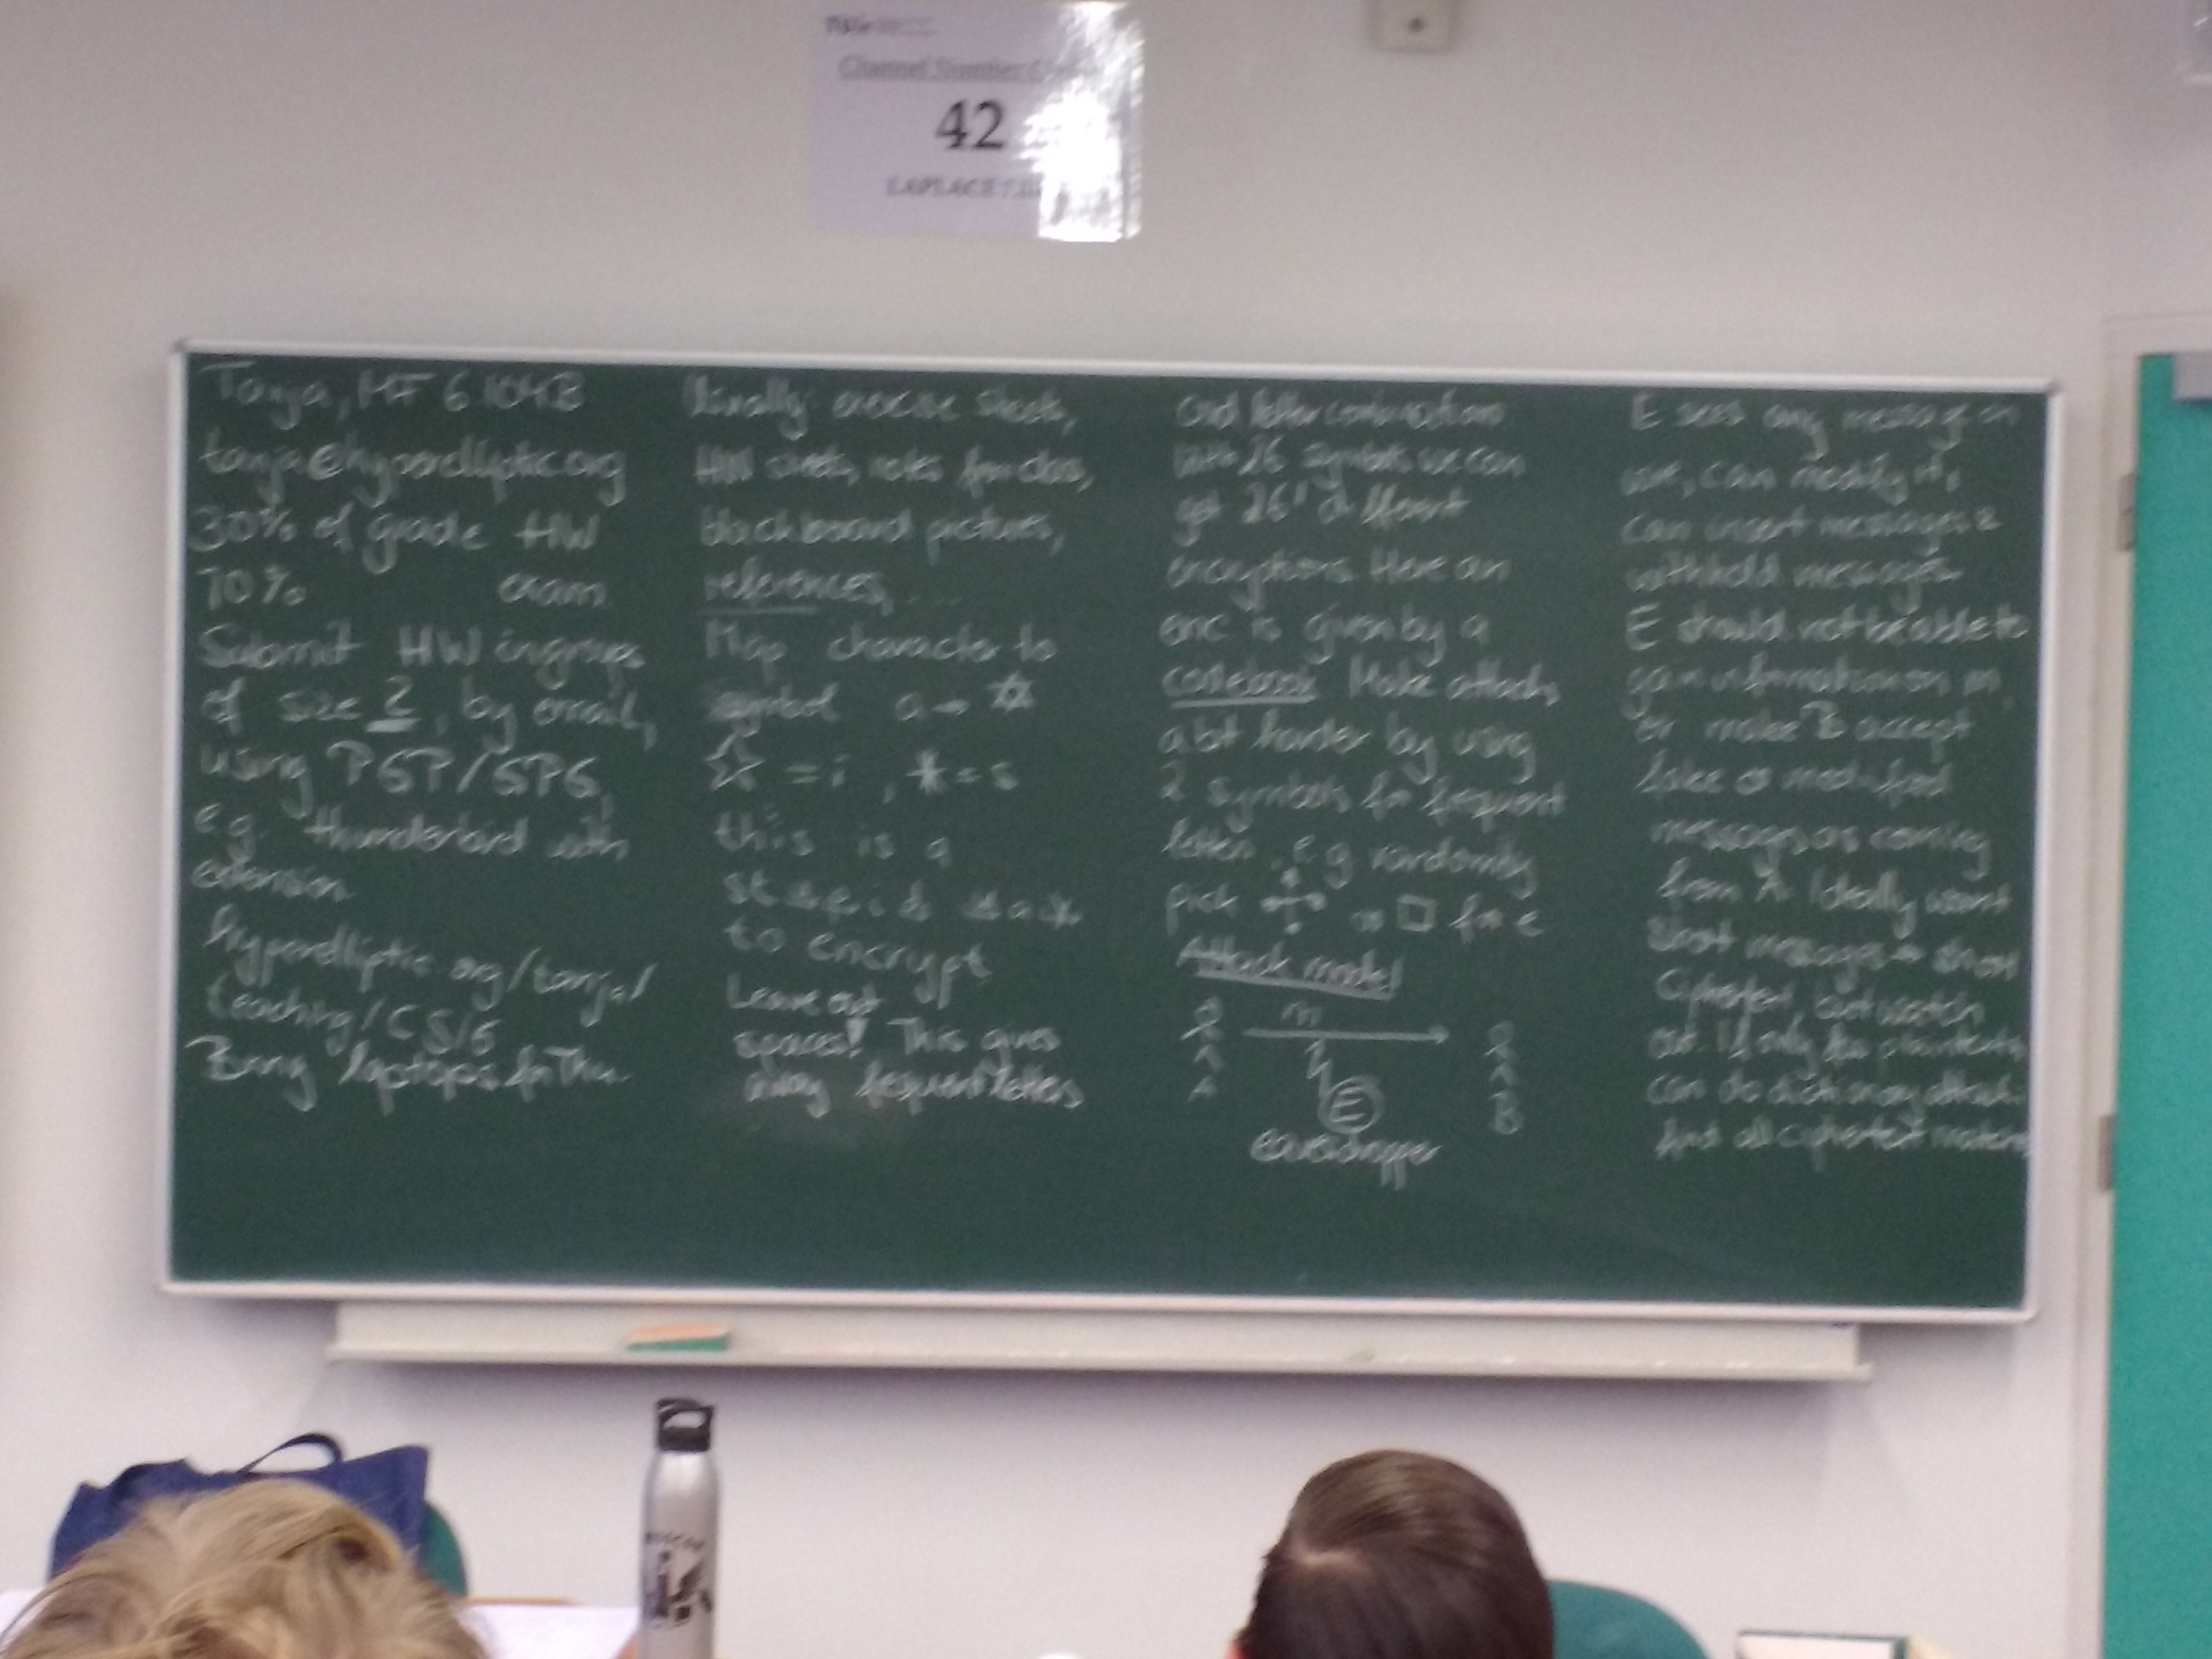 Channel Number
42
LAPLACE
Tanja, MF 6.104B
tanja@hyperelliptic.org
30% of grade HW
70% exam
Submit HW in groups
of size 2, by email,
using PGP/GPG,
e.g. thunderbird with
extension
hyperelliptic.org/tanja/
teaching/CS16
Bring laptops for Thu.
exercise sheets,
HW sheets, notes from class,
blackboard pictures,
references, ...
Map character to
symbol a → ✡
☆ = i , * = s
this is a
stupid
to encrypt
Leave out
spaces! This gives
away frequent letters
and letter combinations
With 26 symbols we can
get 26! different
encryptions. Here an
enc is given by a
codebook. Make attack
a bit harder by using
2 symbols for frequent
letters, e.g. randomly
pick ÷ or □ for e
Attack model
m
A
E
B
eavesdropper
E sees any message on
can modify it,
can insert messages &
withhold messages
E should not be able to
gain information on m,
or make B accept
fake or modified
messages as coming
from A. Ideally want
short messages → short
ciphertext, but watch
out. If only few plaintexts,
can do dictionary attack:
find all ciphertext